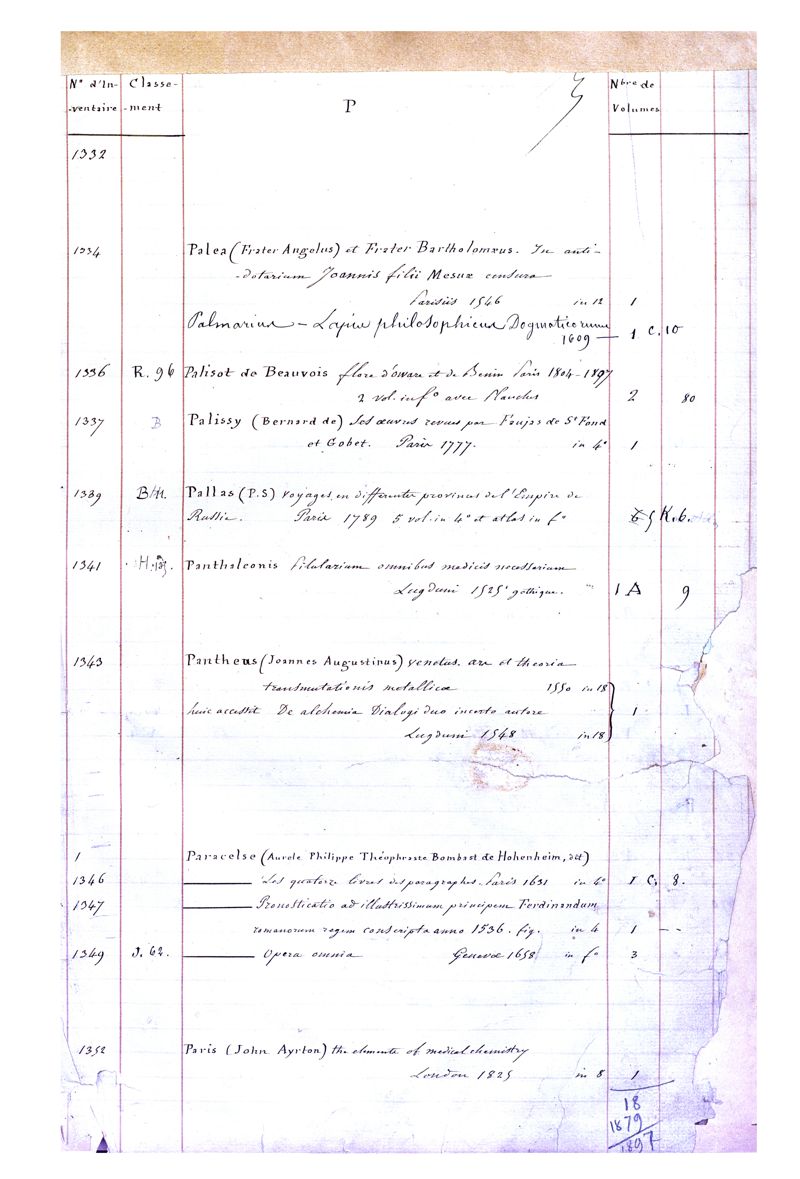 N° d'In- Classe- Nbre de
-ventaire -ment P Volumes
1332
1334 Palea (Frater Angelus) et Frater Bartholomæus. In anti-
-dotarium Joannis filii Mesuæ censura
Parisiis 1546 in 12 1
Palmarius - Lapis philosophicus Dogmaticorum
1609 — 1 C. 10
1336 R. 96 Palisot de Beauvois flore d'oware et de Benin Paris 1804-1897
2 vol. in fo avec Planches 2 80
1337 B Palissy (Bernard de) Ses œuvres revues par Faujas de St Fond
et Gobet. Paris 1777. in 4° 1
1339 B/H. Pallas (P.S) voyages en differente provinces de l'Empire de
Russie. Paris 1789 5 vol. in 4° et atlas in fo 6 5 K. 6.
1341 H. Panthaleonis pilularium omnibus medicis necessarium
Lugduni 1525 gothique. 1 A 9
1343 Pantheus (Joannes Augustinus) venetus. ars et theoria
transmutationis metallicæ 1550 in 18
huic accessit De alchemia Dialogi duo incerto autore 1
Lugduni 1548 in 18
1 Paracelse (Aurele Philippe Théophraste Bombast de Hohenheim, dit)
1346 ——— Les quatorze livres des paragraphes. Paris 1631 in 4° 1 C. 8.
1347 ——— Pronosticatio ad illustrissimum principem Ferdinandum
romanorum regem conscripta anno 1536. fig. in 4 1 --
1349 J. 62. ——— Opera omnia Genevæ 1658 in fo 3
1352 Paris (John Ayrton) the elements of medical chemistry
London 1825 in 8 1
18
1879
1897